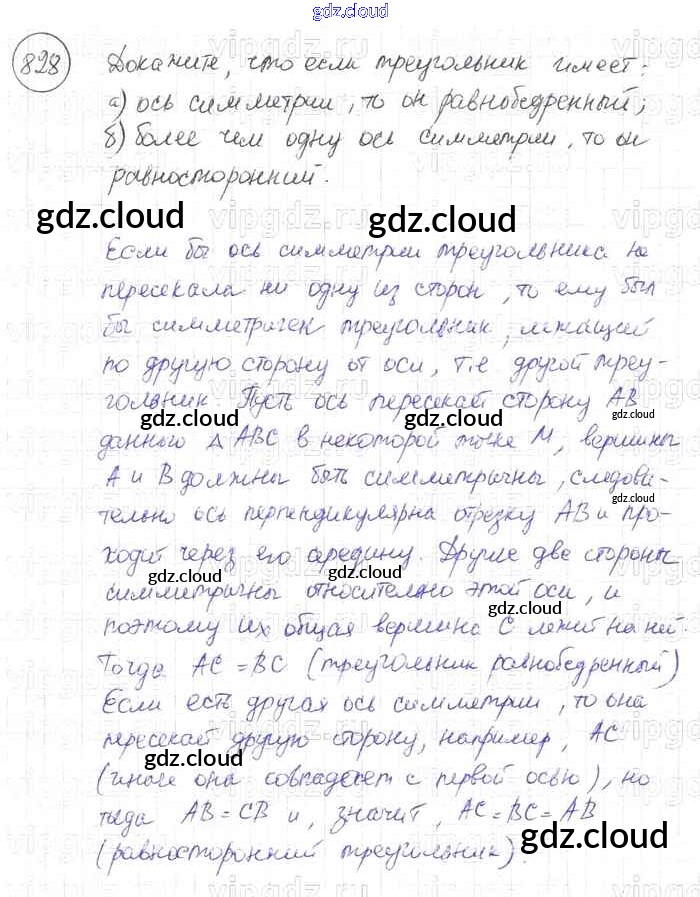 gdz.cloud
828 Докажите, что если треугольник имеет:
а) ось симметрии, то он равнобедренный;
б) более чем одну ось симметрии, то он
равносторонний.
gdz.cloud gdz.cloud
Если бы ось симметрии треугольника не
пересекала ни одну из сторон, то ему был
бы симметричен треугольник, лежащий
по другую сторону от оси, т.е другой треу-
гольник. Пусть ось пересекает сторону AB
gdz.cloud gdz.cloud
данного Δ ABC в некоторой точке M, вершины
A и B должны быть симметричны, следова-
gdz.cloud
тельно ось перпендикулярна отрезку AB и про-
ходит через его середину. Другие две стороны
gdz.cloud gdz.cloud
симметричны относительно этой оси, и
gdz.cloud
поэтому их общая вершина C лежит на ней.
Тогда AC = BC (треугольник равнобедренный)
Если есть другая ось симметрии, то она
пересекает другую сторону, например, AC
(иначе она совпадает с первой осью), но
тогда AB = CB и, значит, AC = BC = AB
gdz.cloud
(равносторонний треугольник).